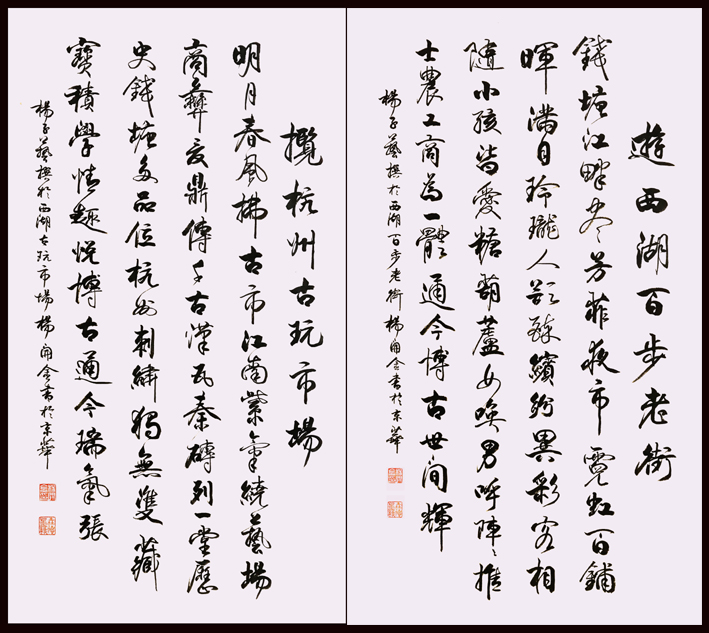 遊西湖百步老街
錢塘江畔尽芳菲夜市霓虹百鋪
暉滿目玲瓏人欲醉繽紛異彩客相
隨小孩皆愛糖葫蘆女喚男呼陣々推
士農工商為一體通今博古世间輝
楊子藝撰於西湖百步老街楊書於京華
攬杭州古玩市場
明月春風拂古市江南紫氣繞藝場
商彝夏鼎傳千古漢瓦秦磚列一堂歷
史錢塘多品位杭州刺繡獨無雙藏
寶積學情趣悦博古通今瑞氣張
楊子藝撰於西湖古玩市場楊書於京華